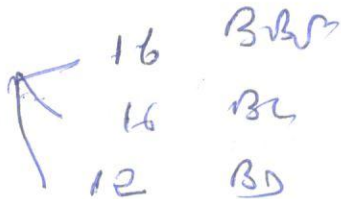 16 BBS
16 BC
12 BD